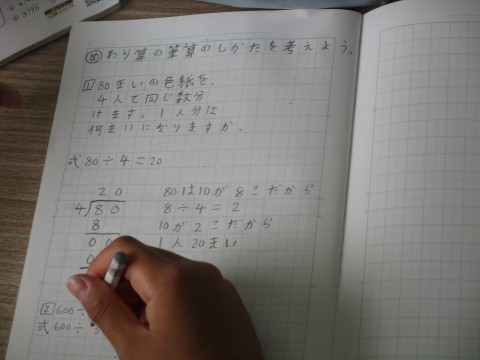 めわり算の筆算のしかたを考えよう。
1 80まいの色紙を、
4人で同じ数分
けます。1人分は
何まいになりますか。
式80÷4=20
20
4)80
8
00
0
80は10が8こだから
8÷4=2
10が2こだから
1人20まい
2 600÷
式600÷